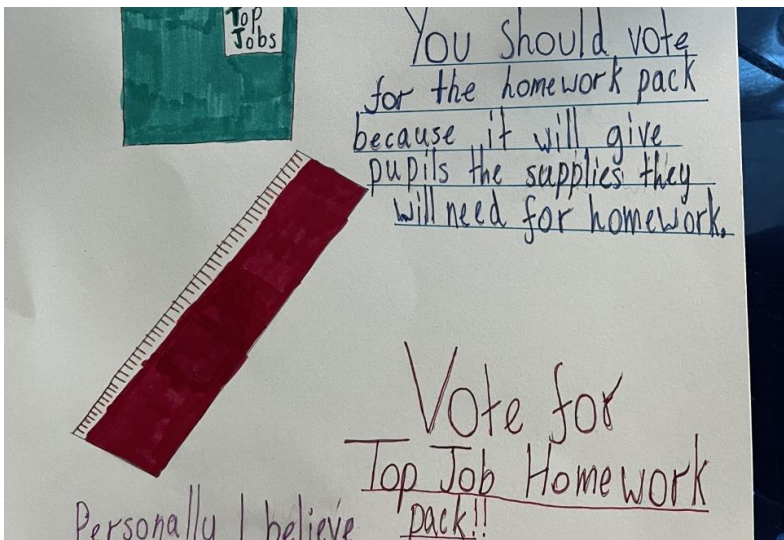 Top
Jobs
You should vote
for the homework pack
because it will give
pupils the supplies they
will need for homework.
Vote for
Top Job Homework
pack!!
Personally I believe